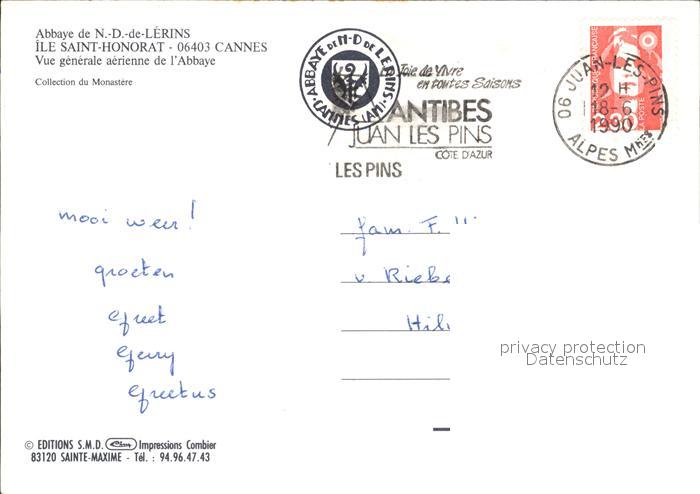 Abbaye de N.-D.-de-LÉRINS
ÎLE SAINT-HONORAT - 06403 CANNES
Vue générale aérienne de l'Abbaye
Collection du Monastère
ABBAYE de N-D de LERINS
CANNES (AM)
Joie de Vivre
en toutes Saisons
ANTIBES
JUAN LES PINS
CÔTE D'AZUR
LES PINS
06 JUAN-LES-PINS
12 H
18-6
1990
ALPES Mmes
LA POSTE
mooi weer!
groeten
Greet
Gerry
Greetus
fam. F.
v Riebe
Hil
privacy protection
Datenschutz
© EDITIONS S.M.D. Cim Impressions Combier
83120 SAINTE-MAXIME - Tél. : 94.96.47.43